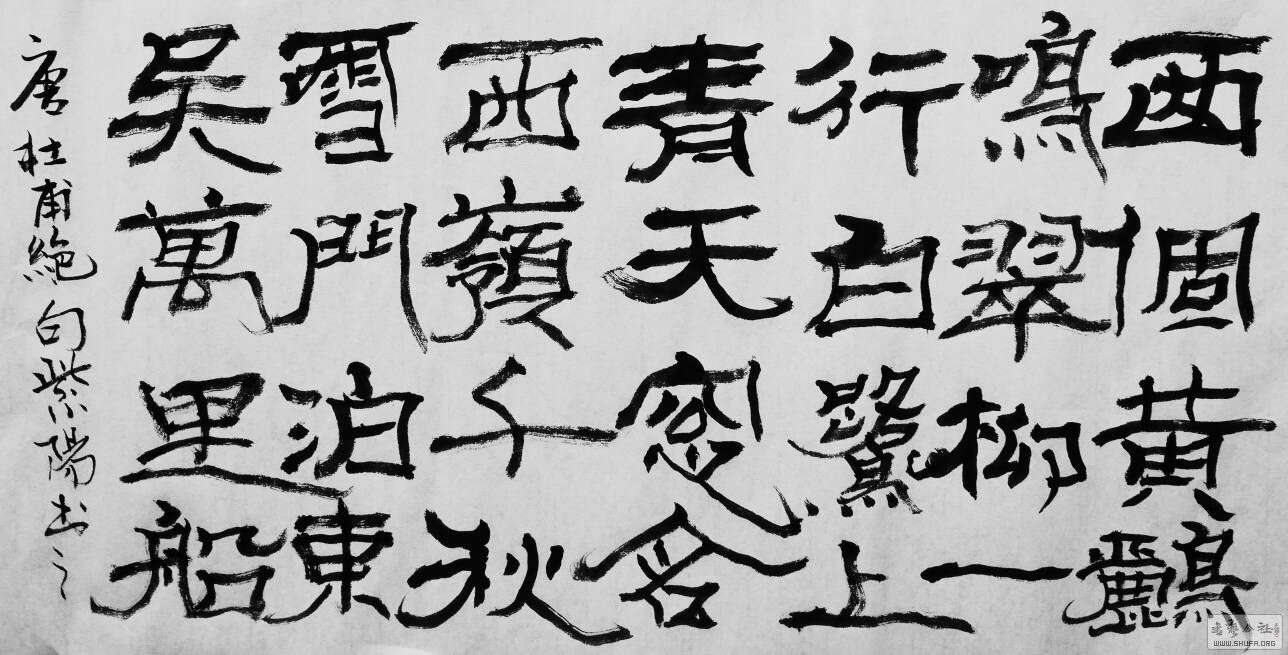 兩個黃鸝
鳴翠柳一
行白鷺上
青天窗含
西嶺千秋
雪門泊東
吳萬里船
唐杜甫絕句紫陽书之
WWW.SHUFA.ORG